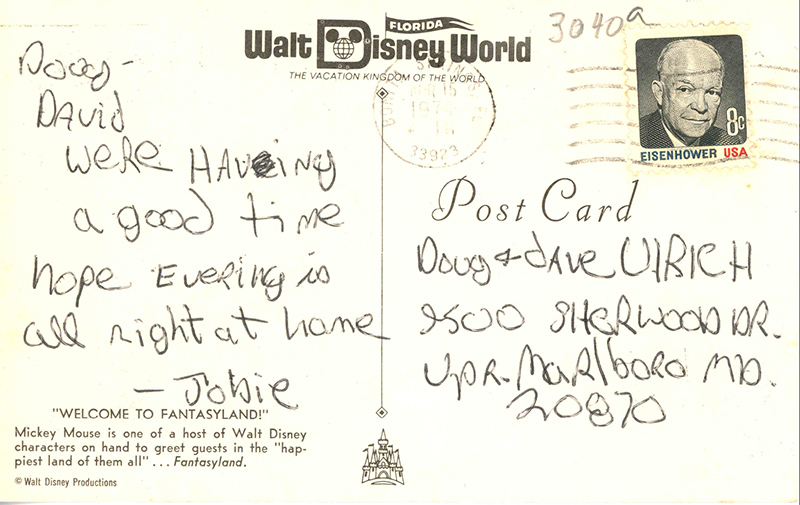 3040a
FLORIDA
Walt Disney World
THE VACATION KINGDOM OF THE WORLD
33923
8c
EISENHOWER USA
Doug -
DAVID
WERE HAVING
a good time
hope EVERING is
all right at home
- Jobie
"WELCOME TO FANTASYLAND!"
Mickey Mouse is one of a host of Walt Disney
characters on hand to greet guests in the "hap-
piest land of them all" ... Fantasyland.
© Walt Disney Productions
Post Card
Doug & dAve UlRICH
9500 SHERWOOD DR.
Upr. MaRlboro MD.
20870